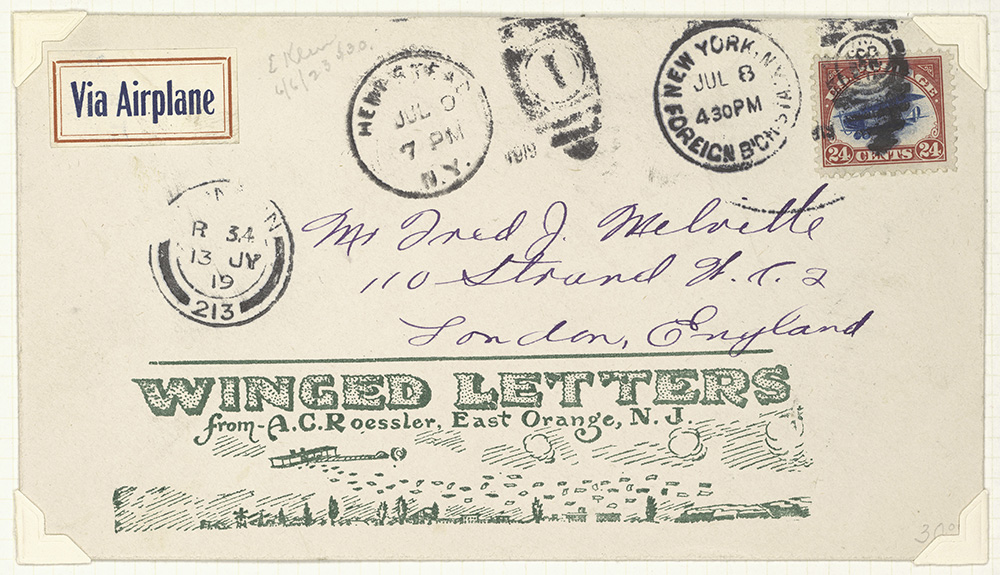 Via Airplane
4/6/23 $30.
HEMPSTEAD
JUL
7 PM
N.Y.
1919
1
NEW YORK, N.Y.
JUL 8
4.30 PM
FOREIGN
24 CENTS 24
R 34
13 JY
19
213
Mr Fred J. Melville
110 Strand W.C. 2
London, England
WINGED LETTERS
from A.C. Roessler, East Orange, N.J.